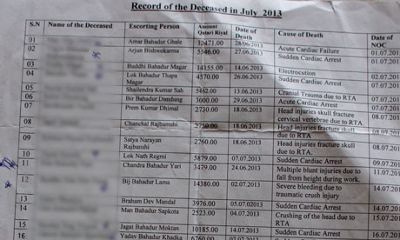 Record of the Deceased in July 2013
S.N Name of the Deceased Escorting Person Amount Qatari Riyal Date of Death Cause of Death Date of NOC
01 Amar Bahadur Ghale 12471.00 28.06.2013 Acute Cardiac Failure 01.07.201
02 Arjun Bishwokarma 5546.00 27.06.2013 Sudden Cardiac Arrest 01.07.20
03 Buddhi Bahadur Magar 14155.00 14.06.2013 Electrocution
04 Lok Bahadur Thapa Magar 4570.00 26.06.2013 Sudden Cardiac Arrest
05 Shailendra Kumar Sah 5462.00 13.06.2013 Cranial Trauma due to RTA
06 Bir Bahadur Dandung 3600.00 29.06.2013 Sudden Cardiac Arrest
07 Prem Kumar Dhimal 2730.00 18.06.2013 Head injuries skull fracture cervical vertebrae due to RTA
08 Chanchal Rajbanshi 18.06.2013 Head injuries fracture skull due to RTA
09 Satya Narayan Rajbanshi 2260.00 18.06.2013 Head injuries fracture skull due to RTA
10 Lok Nath Regmi 5879.00 07.07.2013 Sudden Cardiac Arrest 09.07.201
11 Chandra Bahadur Yari 3479.00 24.06.2013 Multiple blunt injuries due to fall from height during work.
12 Bij Bahadur Lama 14380.00 02.07.2013 Severe bleeding due to traumatic crush injury 14.07
13 Braham Dev Mandal 3976.00 05.07.2013 Sudden Cardiac Arrest
14 Man Bahadur Sapkota 2523.00 04.07.2013 Crushing of the head due to RTA
15 Jagat Bahadur Moktan 10185.00 14.07.2013 Sudden Cardiac Arrest
16 Yadav Bahadur Khadka